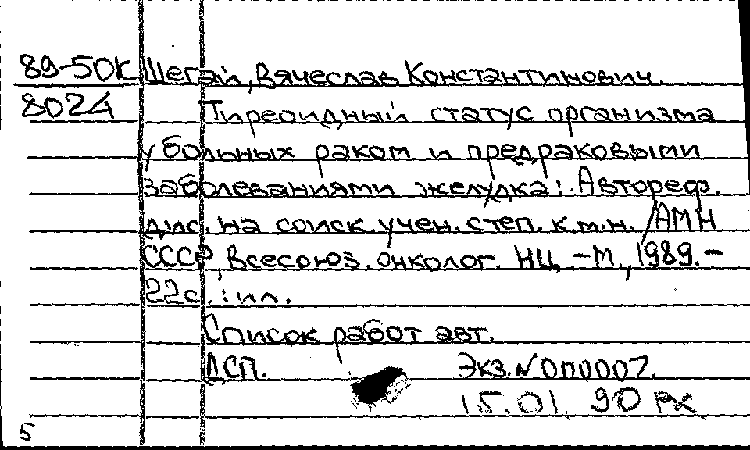 89-50К Шегай, Вячеслав Константинович.
8024 Тиреоидный статус организма
у больных раком и предраковыми
заболеваниями желудка: Автореф.
дис. на соиск. учен. степ. к.м.н. /АМН
СССР, Всесоюз. онколог. НЦ. – М., 1989. –
22с.: ил.
Список работ авт.
ДСП. Экз. N 000007.
15.01.90 РК
5